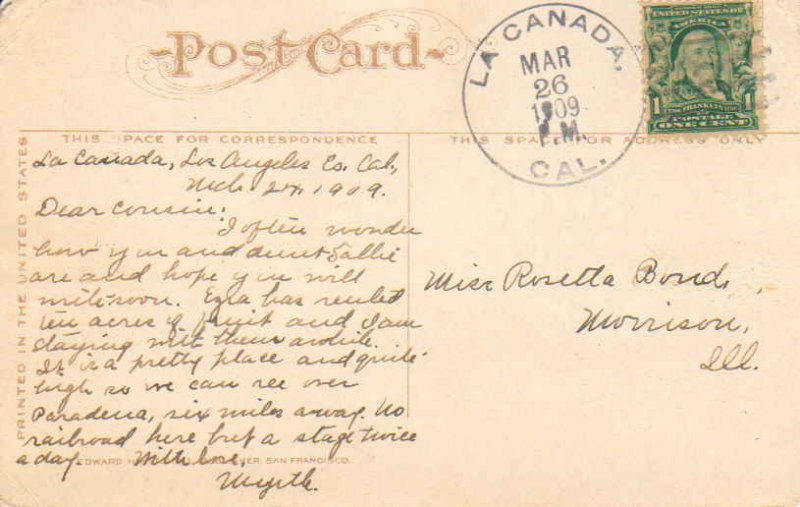 Post Card
LA CANADA,
MAR
26
1909
P.M.
CAL.
UNITED STATES OF AMERICA
1 FRANKLIN 1
POSTAGE
ONE CENT
THIS SPACE FOR CORRESPONDENCE
THIS SPACE FOR ADDRESS ONLY
PRINTED IN THE UNITED STATES
La Canada, Los Angeles Co. Cal,
Mch 1909.
Dear Cousin:
I often wonder
how you and aunt Sallie
are and hope you will
write soon. Ezra has rented
ten acres of fruit and I am
staying with them awhile.
It is a pretty place and quite
high so we can see over
Pasadena, six miles away. No
railroad here but a stage twice
a day. With love,
Myrtle.
EDWARD SAN FRANCISCO.
Miss Rosetta Bond,
Morrison,
Ill.